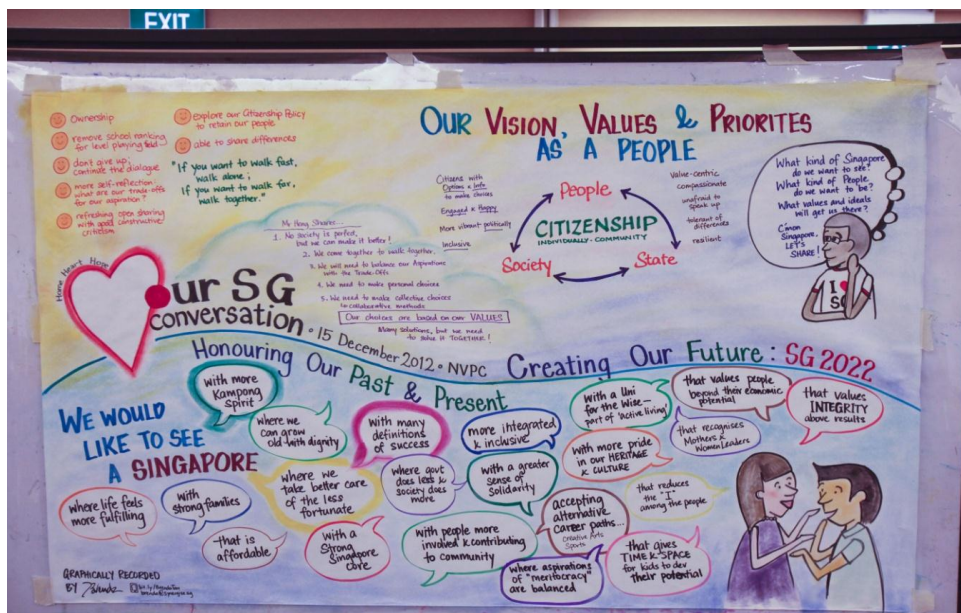 EXIT
Ownership
remove school ranking
for level playing field
don't give up;
continue the dialogue
more self-reflection:
what are our trade-offs
for our aspiration?
refreshing open sharing
with good constructive
criticism
explore our Citizenship Policy
to retain our people
able to share differences
"If you want to walk fast,
walk alone;
If you want to walk far,
walk together."
OUR VISION, VALUES & PRIORITES
AS A PEOPLE
Citizens with
Options & Info
to make choices
Engaged & Happy
More vibrant politically
Inclusive
People
CITIZENSHIP
INDIVIDUALLY · COMMUNITY
Society
State
Value-centric
compassionate
unafraid to
speak up
tolerant of
differences
resilient
What kind of Singapore
do we want to see?
What kind of People
do we want to be?
What values and ideals
will get us there?
C'mon
Singapore,
LET'S
SHARE!
I
SG
Mr Heng Shares...
1. No society is perfect,
but we can make it better!
2. We come together to walk together.
3. We will need to balance our Aspirations
with the Trade-Offs
4. We need to make personal choices
5. We need to make collective choices
to collaborative methods
Our choices are based on our VALUES
Many solutions, but we need
to solve it TOGETHER!
Home Heart Hope
ur SG
conversation • 15 December 2012 • NVPC
Honouring Our Past & Present
Creating Our Future : SG 2022
WE WOULD
LIKE TO SEE
A SINGAPORE
with more
Kampong
Spirit
where we
can grow
old with dignity
with many
definitions
of success
more integrated
& inclusive
with a Uni
for the Wise—
part of 'active living'
that values people
beyond their economic
potential
that values
INTEGRITY
above results
that recognises
Mothers &
Women Leaders
with more pride
in our HERITAGE
& CULTURE
where life feels
more fulfilling
with
strong families
where we
take better care
of the less
fortunate
where govt
does less &
society does
more
with a greater
sense of
Solidarity
that reduces
the "I"
among the people
accepting
alternative
career paths...
Creative Arts
Sports
that is
affordable
with a
Strong
Singapore
core
with people more
involved & contributing
to community
where aspirations
of "meritocracy"
are balanced
that gives
TIME & SPACE
for kids to dev
their potential
GRAPHICALLY RECORDED
BY